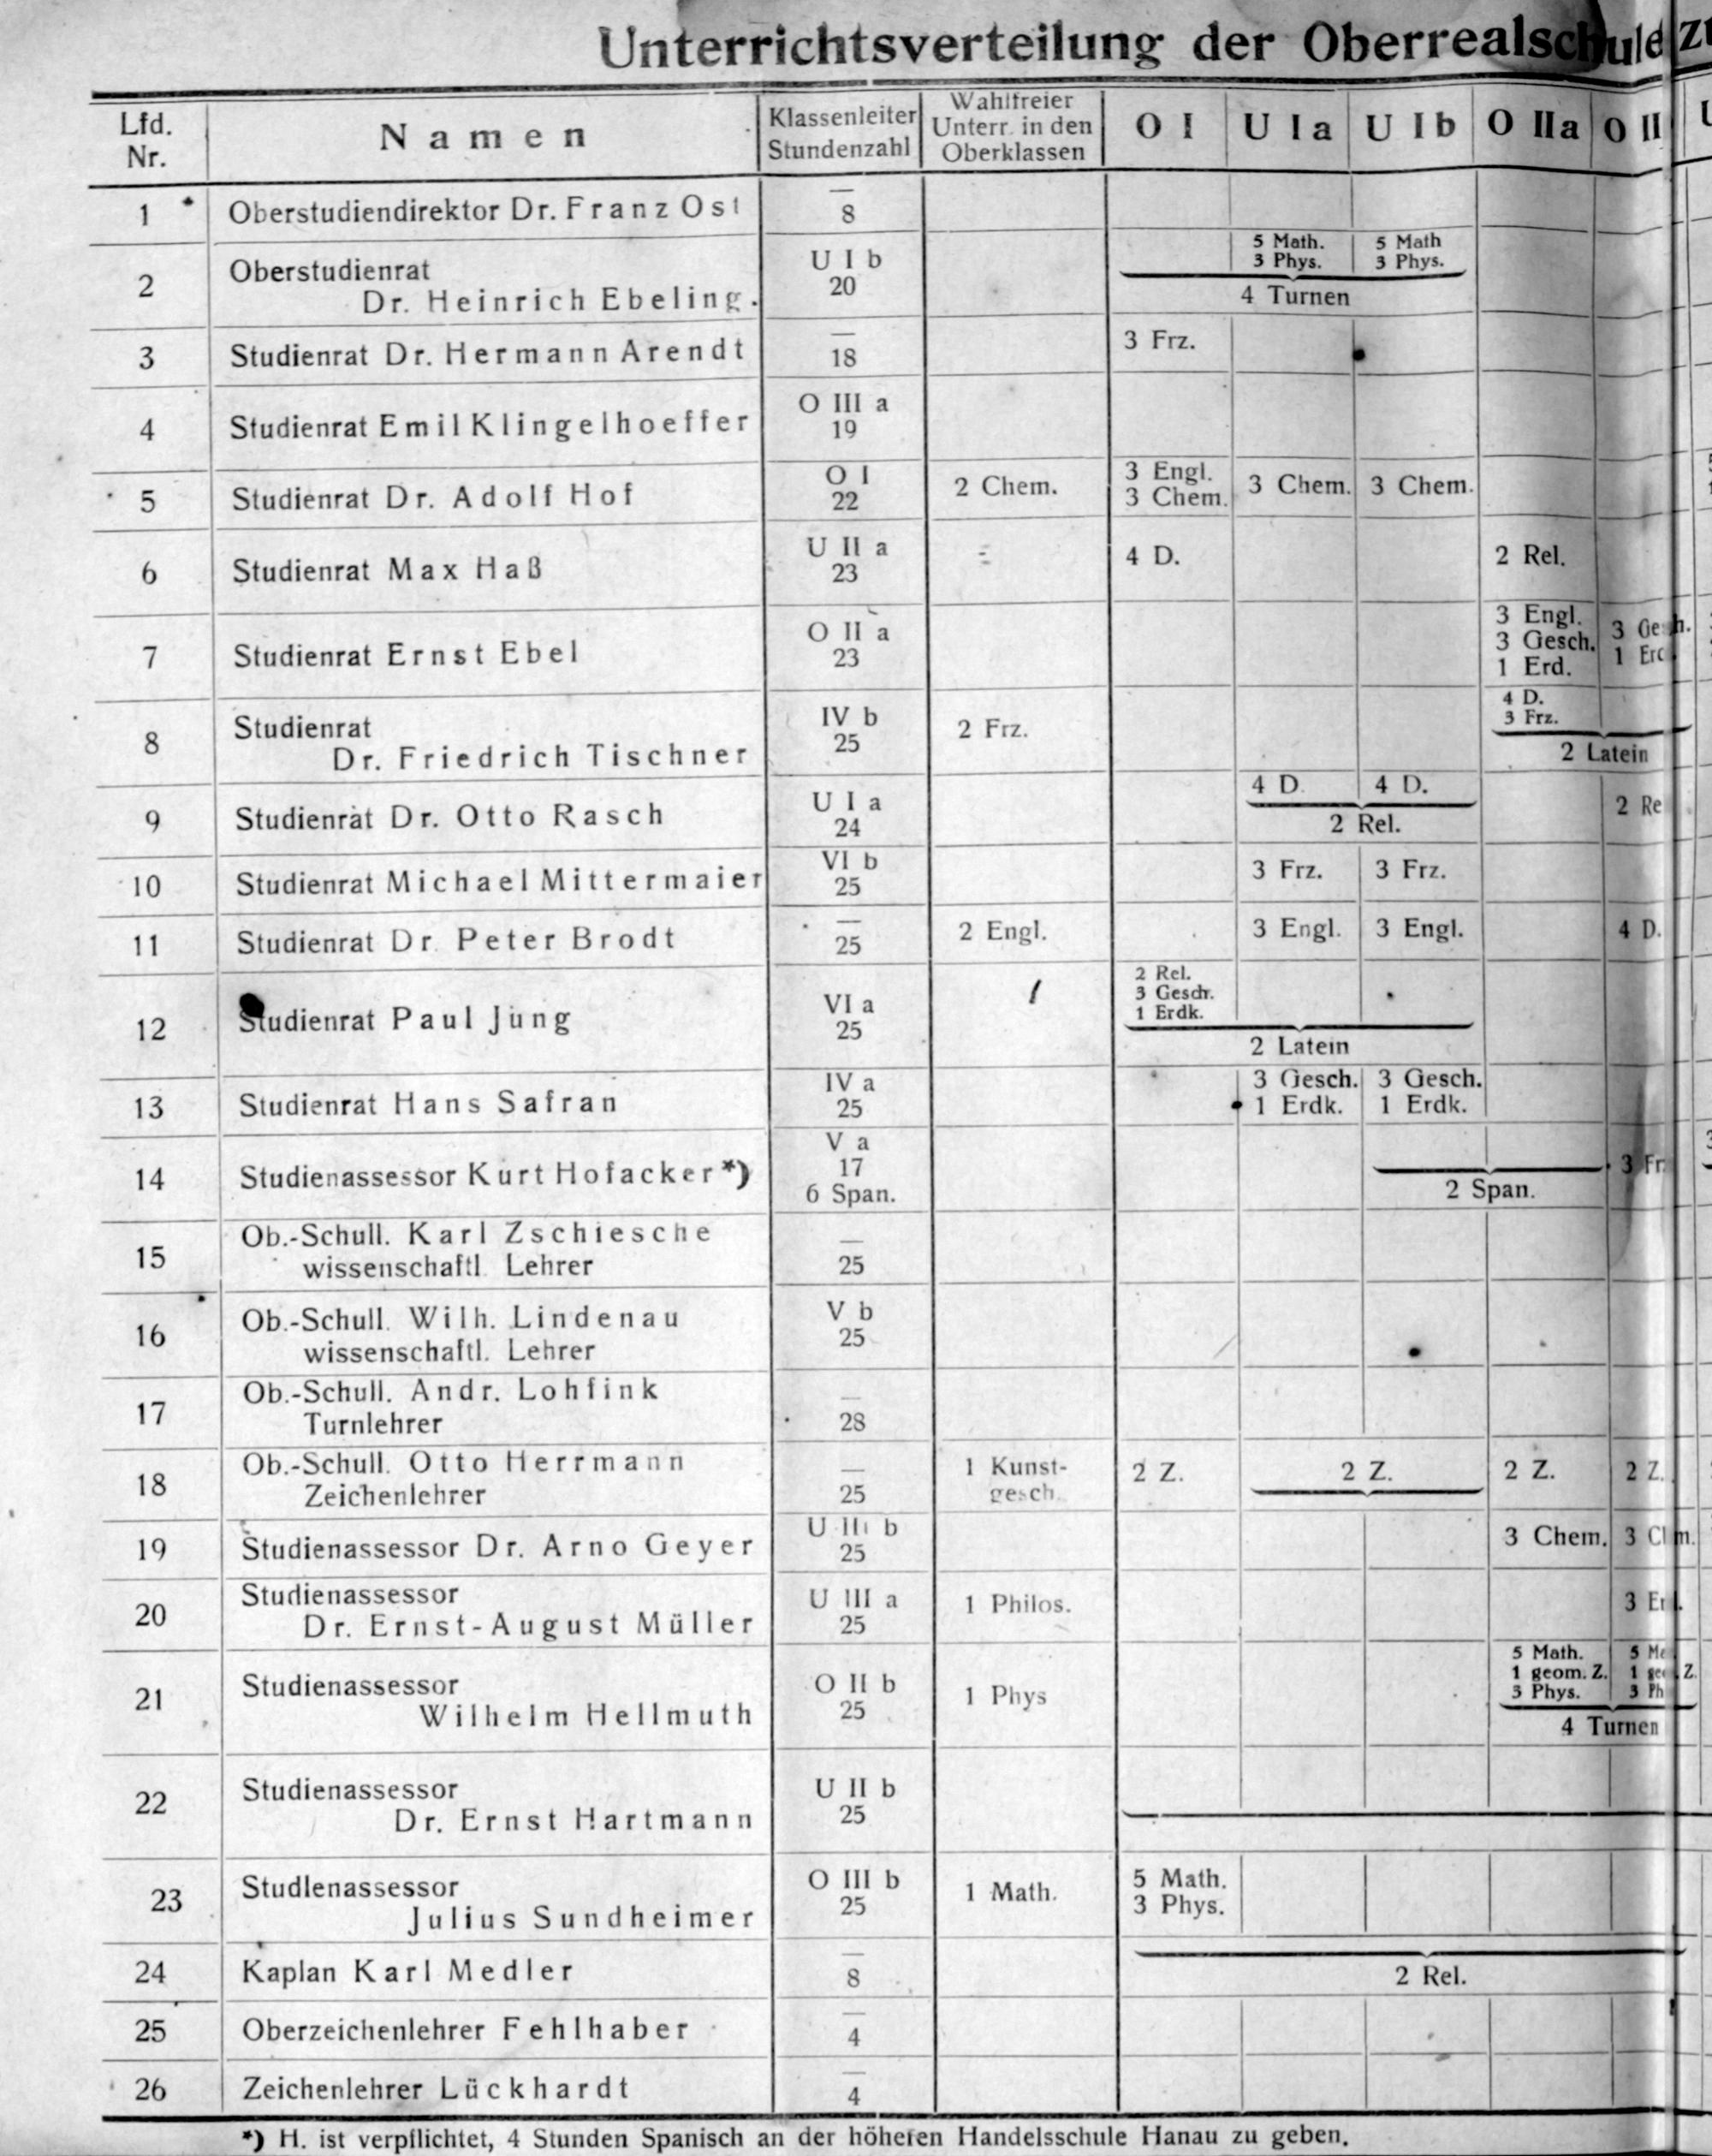 Unterrichtsverteilung der Oberrealschule zu
Lfd. Nr.
Namen
Klassenleiter Stundenzahl
Wahlfreier Unterr. in den Oberklassen
O I
U I a
U I b
O II a
O II
1 Oberstudiendirektor Dr. Franz Ost — 8
2 Oberstudienrat Dr. Heinrich Ebeling. U I b 20 5 Math. 3 Phys. 5 Math 3 Phys. 4 Turnen
3 Studienrat Dr. Hermann Arendt — 18 3 Frz.
4 Studienrat Emil Klingelhoeffer O III a 19
5 Studienrat Dr. Adolf Hof O I 22 2 Chem. 3 Engl. 3 Chem. 3 Chem. 3 Chem.
6 Studienrat Max Haß U II a 23 4 D. 2 Rel.
7 Studienrat Ernst Ebel O II a 23 3 Engl. 3 Gesch. 1 Erd. 3 1
8 Studienrat Dr. Friedrich Tischner IV b 25 2 Frz. 4 D. 3 Frz. 2 Latein
9 Studienrat Dr. Otto Rasch U I a 24 4 D. 4 D. 2 Rel. 2 Re
10 Studienrat Michael Mittermaier VI b 25 3 Frz. 3 Frz.
11 Studienrat Dr. Peter Brodt — 25 2 Engl. 3 Engl. 3 Engl. 4 D.
12 Studienrat Paul Jung VI a 25 2 Rel. 3 Gesch. 1 Erdk. 2 Latein
13 Studienrat Hans Safran IV a 25 3 Gesch. 1 Erdk. 3 Gesch. 1 Erdk.
14 Studienassessor Kurt Hofacker *) V a 17 6 Span. 2 Span. 3 Fr
15 Ob.-Schull. Karl Zschiesche wissenschaftl. Lehrer — 25
16 Ob.-Schull. Wilh. Lindenau wissenschaftl. Lehrer V b 25
17 Ob.-Schull. Andr. Lohfink Turnlehrer — 28
18 Ob.-Schull. Otto Herrmann Zeichenlehrer — 25 1 Kunst- gesch. 2 Z. 2 Z. 2 Z. 2 Z.
19 Studienassessor Dr. Arno Geyer U III b 25 3 Chem. 3
20 Studienassessor Dr. Ernst-August Müller U III a 25 1 Philos. 3
21 Studienassessor Wilhelm Hellmuth O II b 25 1 Phys 5 Math. 1 geom. Z. 3 Phys. 5 1 Z. 3 Ph 4 Turnen
22 Studienassessor Dr. Ernst Hartmann U II b 25
23 Studienassessor Julius Sundheimer O III b 25 1 Math. 5 Math. 3 Phys.
24 Kaplan Karl Medler — 8 2 Rel.
25 Oberzeichenlehrer Fehlhaber — 4
26 Zeichenlehrer Lückhardt — 4
*) H. ist verpflichtet, 4 Stunden Spanisch an der höheren Handelsschule Hanau zu geben.